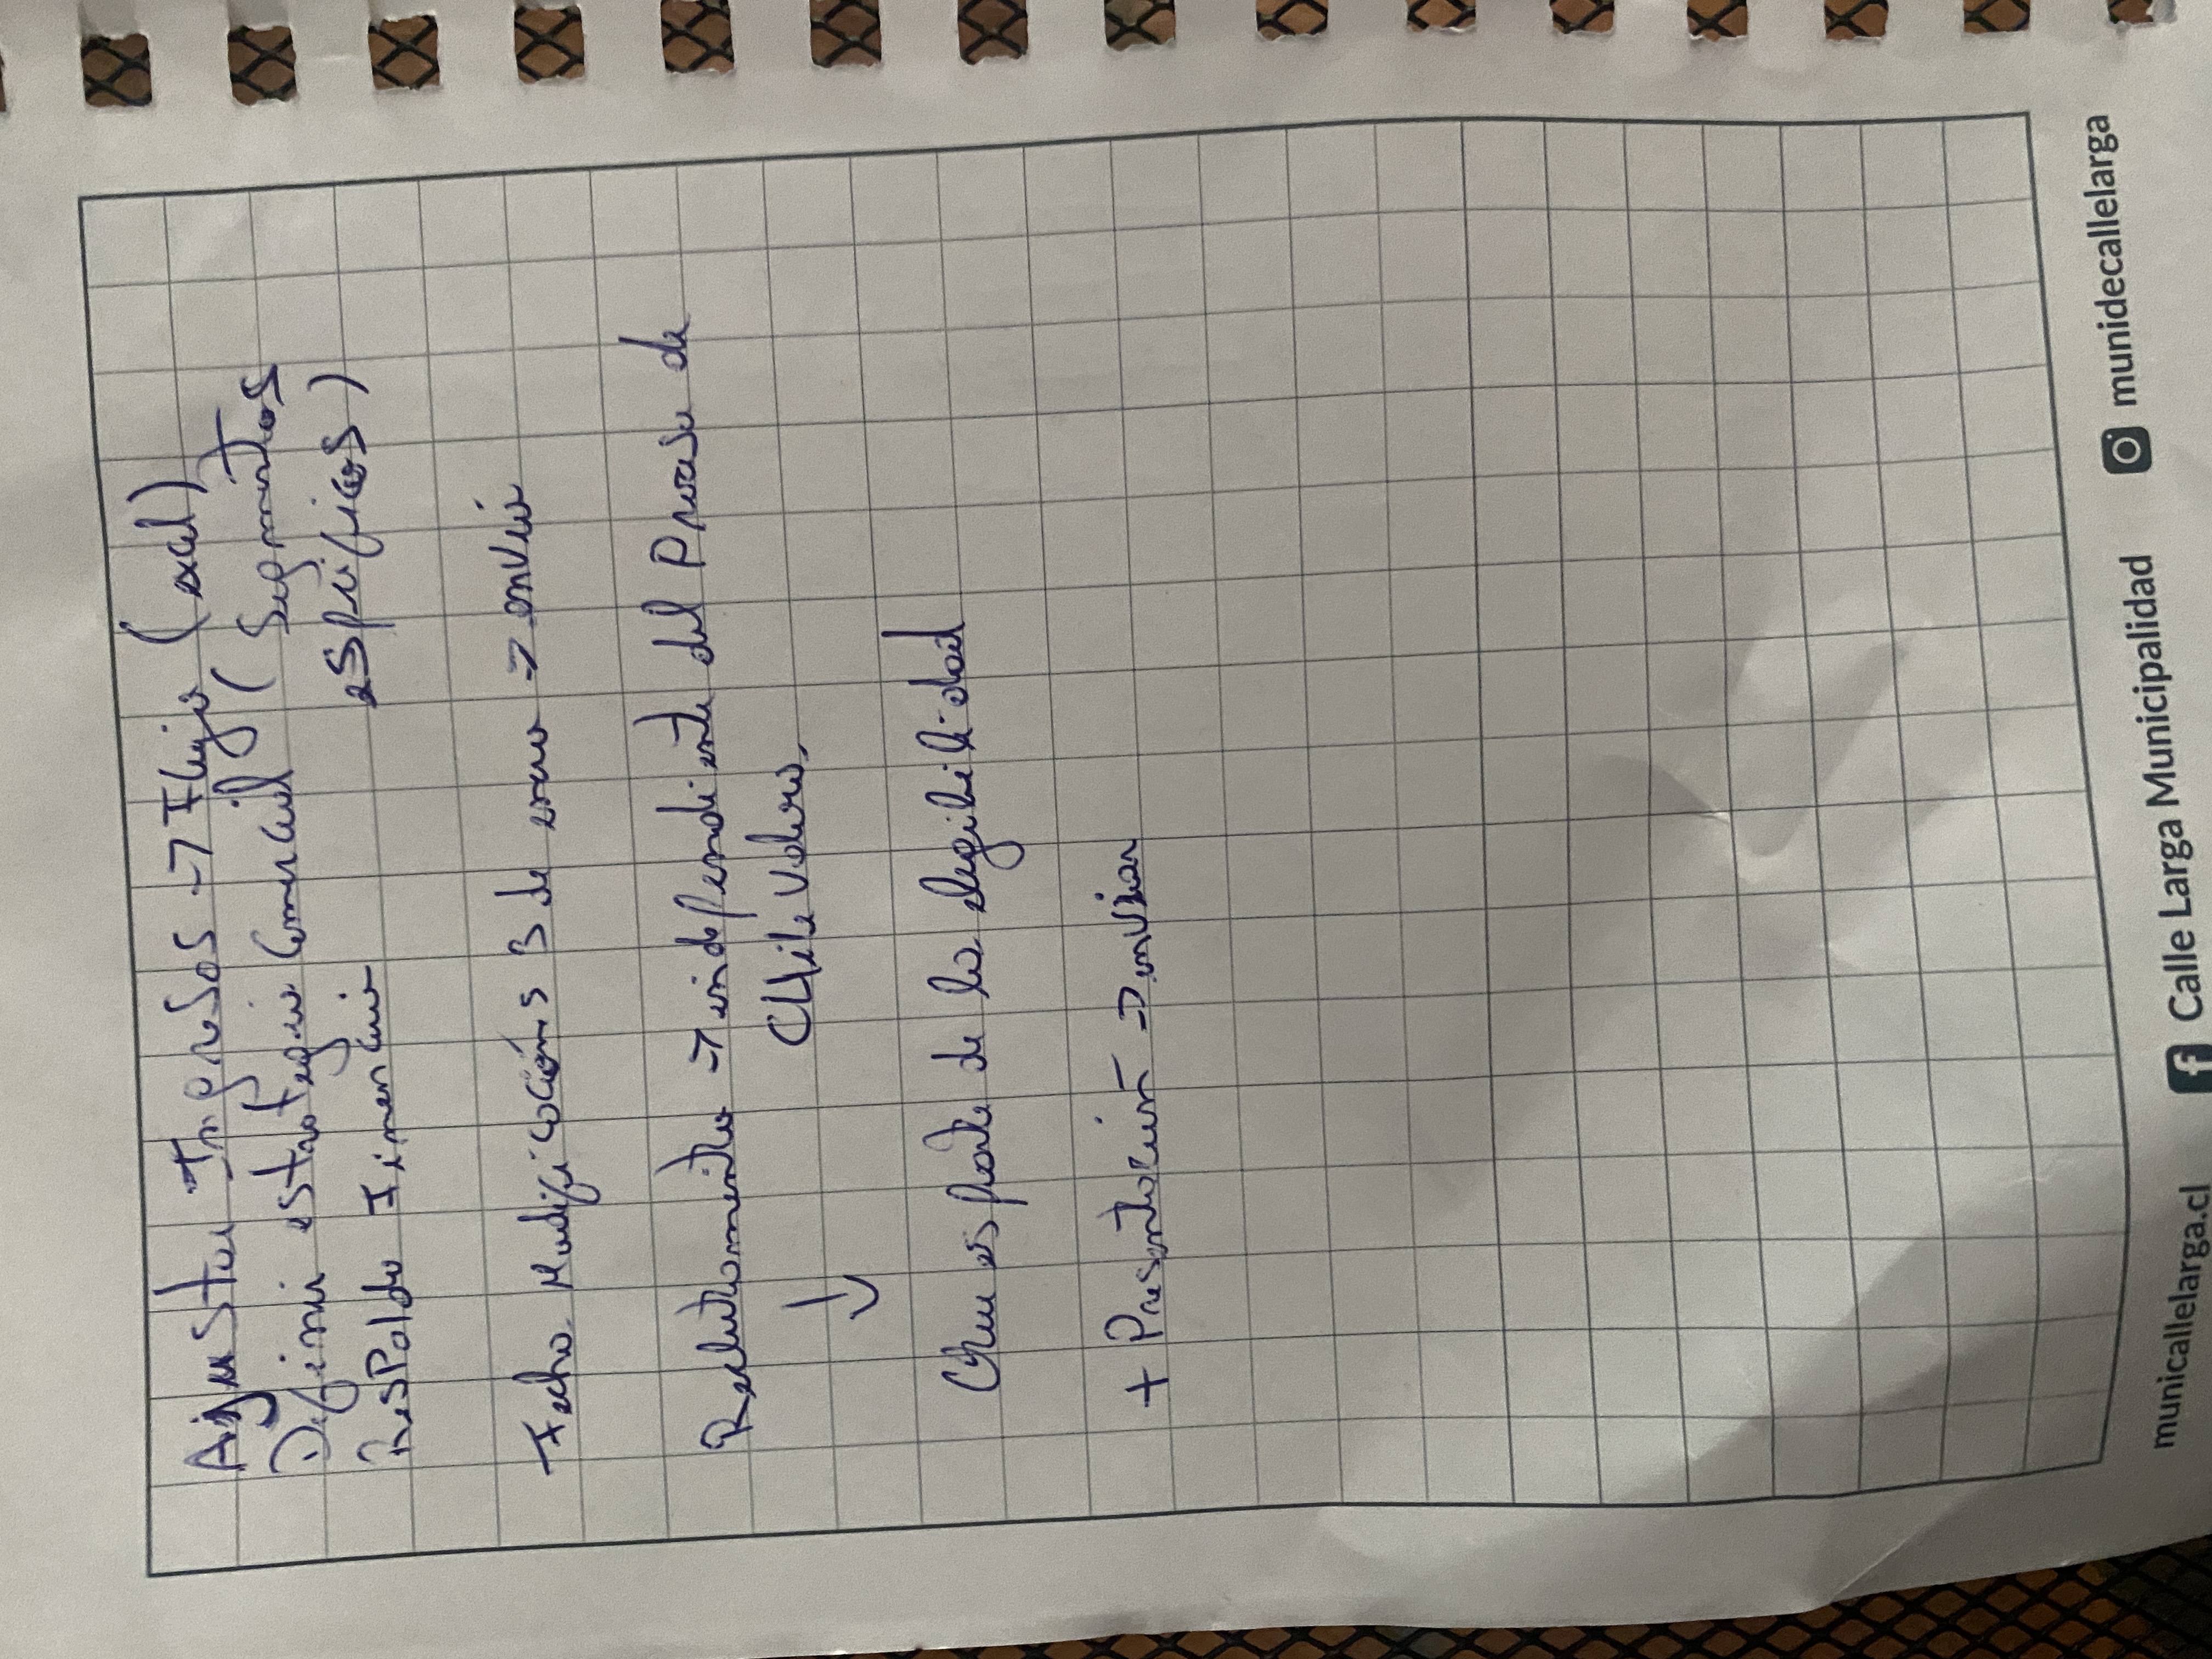 Ajustar Ingresos -> Flujo (excel)
Definir estrategia Comercial (Segmentos
específicos)
Respaldo Financiero
Fecha Modificaciones 3 de enero => envío
Reclutamiento -> independiente del Proceso de
CHile Valora.
↓
Que es parte de la elegibilidad
+ Presentación -> enviar
municallelarga.cl
Calle Larga Municipalidad
munidecallelarga